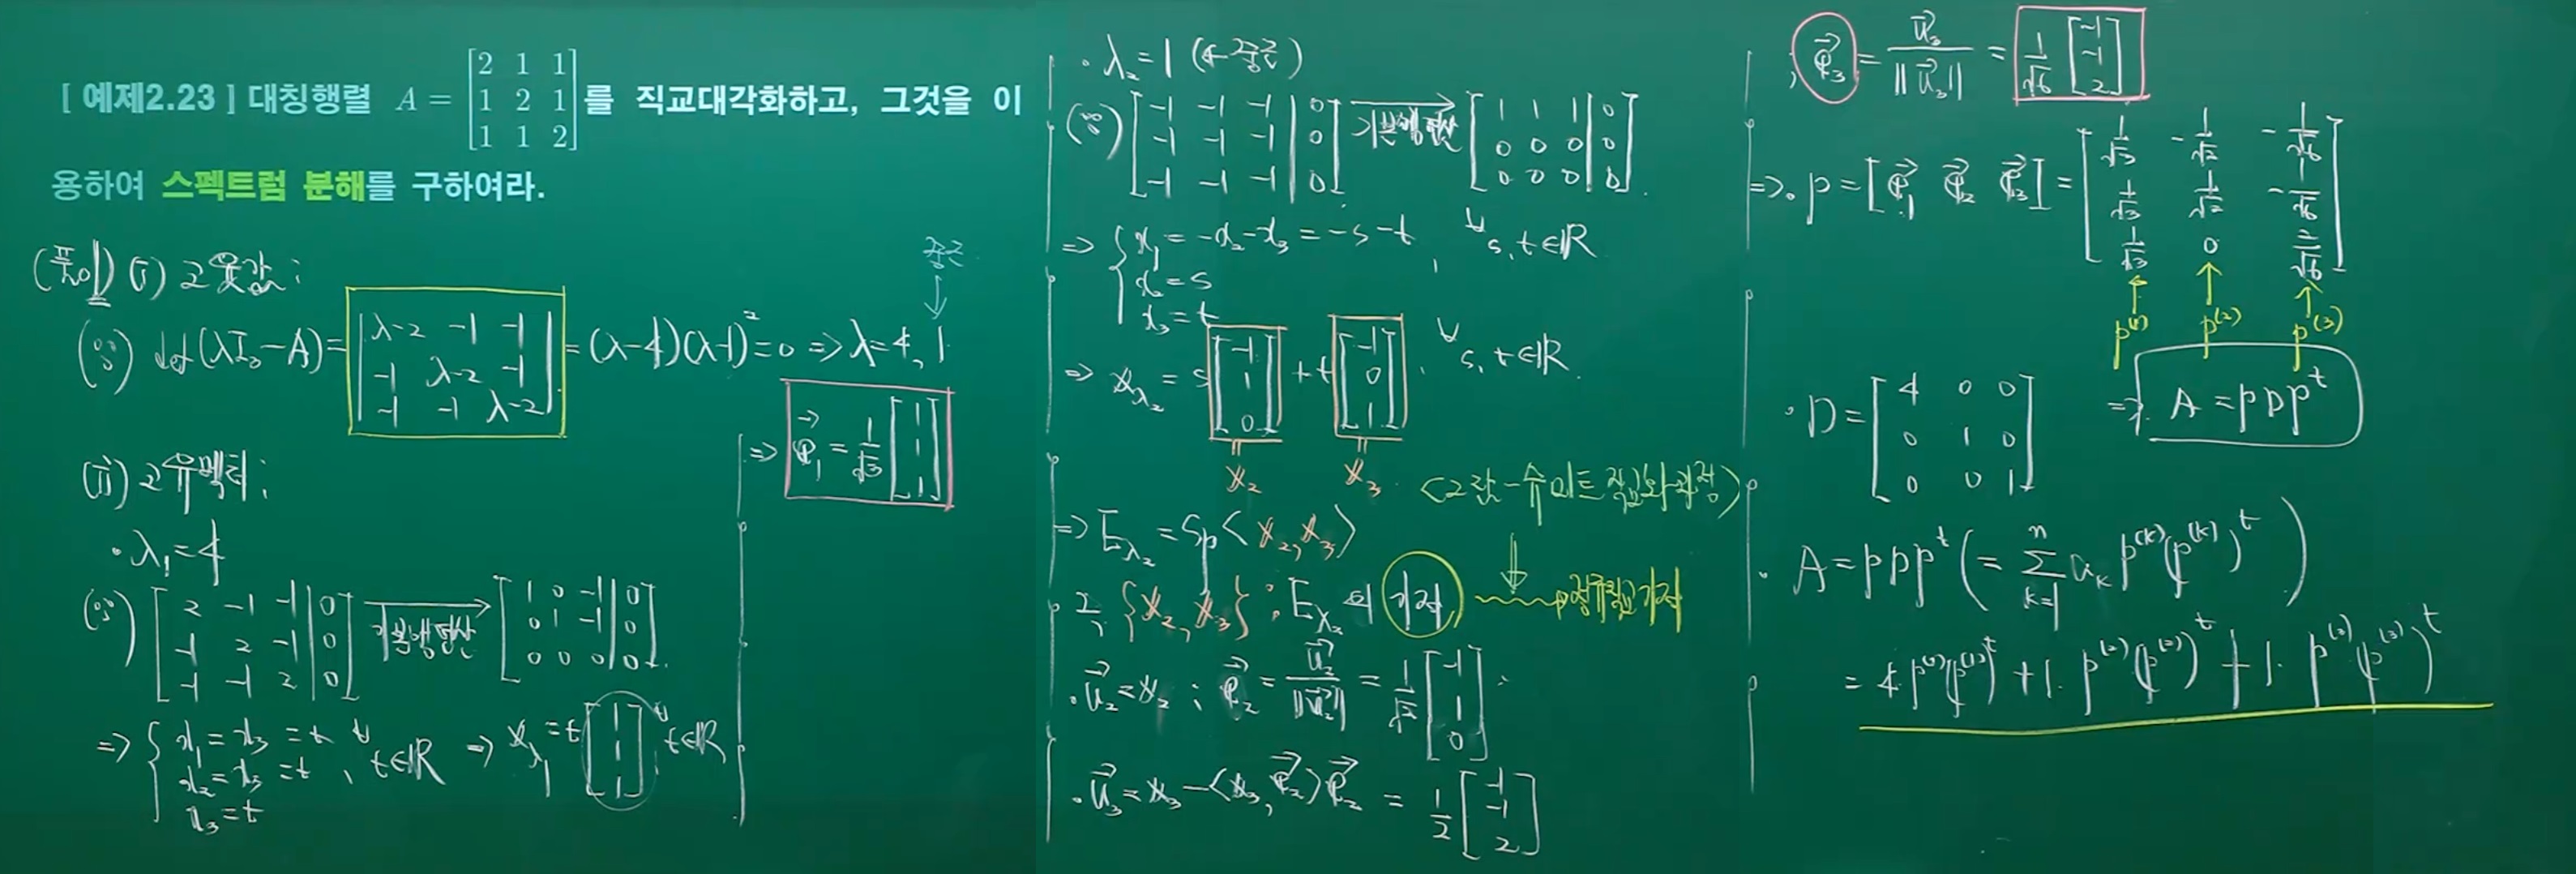 [ 예제2.23 ] 대칭행렬 A = [2 1 1; 1 2 1; 1 1 2] 를 직교대각화하고, 그것을 이
용하여 스펙트럼 분해를 구하여라.
(풀이) (i) 고윳값 ;
중근
(∵) det(λI₃-A) = |λ-2 -1 -1; -1 λ-2 -1; -1 -1 λ-2| = (λ-4)(λ-1)² = 0 => λ = 4, 1
(ii) 고유벡터 ;
• λ₁ = 4
(∵) [2 -1 -1 | 0; -1 2 -1 | 0; -1 -1 2 | 0] → [1 0 -1 | 0; 0 1 -1 | 0; 0 0 0 | 0]
기본행연산
=> { x₁ = x₃ = t, x₂ = x₃ = t, x₃ = t, ∀t∈ℝ => x_λ₁ = t[1; 1; 1], ∀t∈ℝ
=> q₁ = 1/√3 [1; 1; 1]
• λ₂ = 1 (← 중근)
(∵) [-1 -1 -1 | 0; -1 -1 -1 | 0; -1 -1 -1 | 0] → [1 1 1 | 0; 0 0 0 | 0; 0 0 0 | 0]
기본행연산
=> { x₁ = -x₂-x₃ = -s-t, ∀s, t∈ℝ
x₂ = s
x₃ = t
=> x_λ₂ = s[-1; 1; 0] + t[-1; 0; 1], ∀s, t∈ℝ
x₂ x₃
<그람-슈미트 직교화 과정>
=> E_λ₂ = Sp<x₂, x₃>
{x₂, x₃} : E_λ₂의 기저 → 정규직교기저
• u₂ = x₂ ; q₂ = u₂/‖u₂‖ = 1/√2 [-1; 1; 0]
• u₃ = x₃ - <x₃, q₂>q₂ = 1/2 [-1; -1; 2]
; q₃ = u₃/‖u₃‖ = 1/√6 [-1; -1; 2]
=> • P = [q₁ q₂ q₃] = [1/√3 -1/√2 -1/√6; 1/√3 1/√2 -1/√6; 1/√3 0 2/√6]
p⁽¹⁾ p⁽²⁾ p⁽³⁾
• D = [4 0 0; 0 1 0; 0 0 1] => A = PDPᵗ
• A = PDPᵗ (= Σ_{k=1}^{n} a_k p⁽ᵏ⁾(p⁽ᵏ⁾)ᵗ)
= 4·p⁽¹⁾(p⁽¹⁾)ᵗ + 1·p⁽²⁾(p⁽²⁾)ᵗ + 1·p⁽³⁾(p⁽³⁾)ᵗ